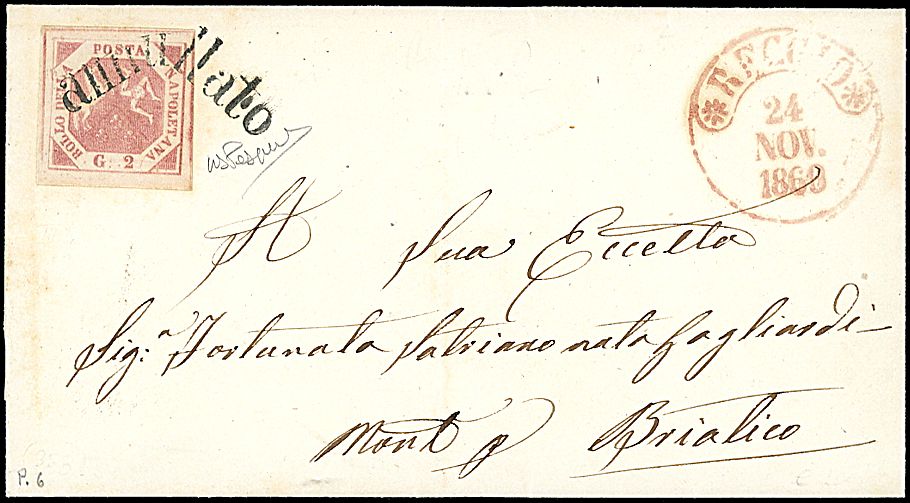 POSTA NAPOLETANA
BOLLO DELLA
G. 2
annullato
*REGGIO*
24
NOV.
1860
A Sua Eccellza
Sig.ª Fortunata Satriano nata Gagliardi—
Mont p Briatico
P. 6